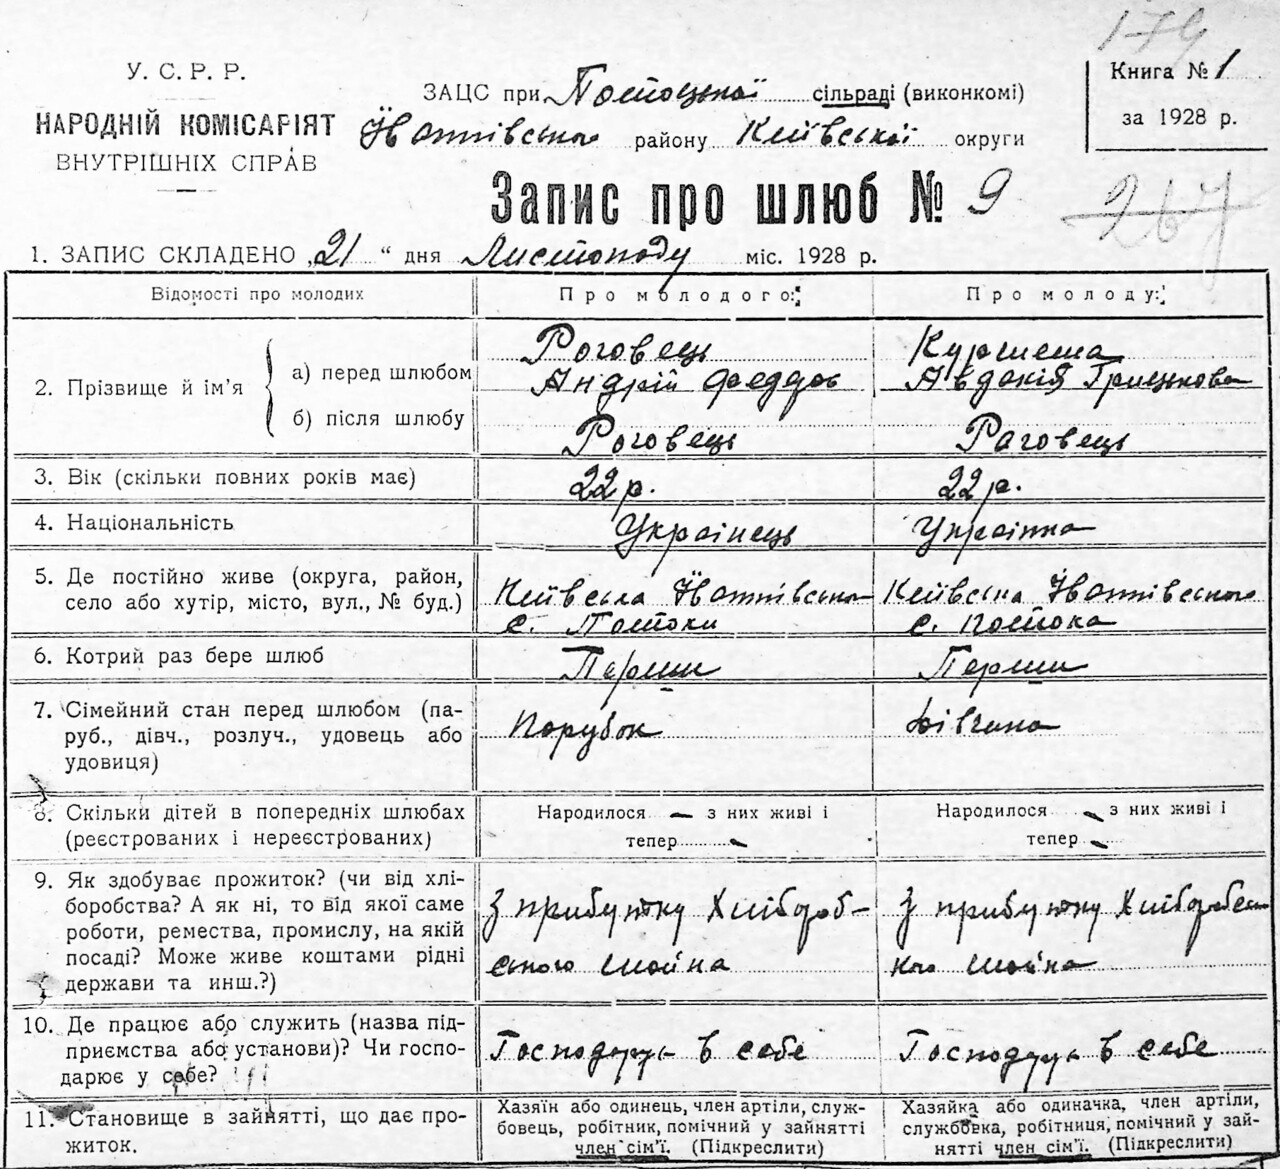 179
У. С. Р. Р.
НАРОДНІЙ КОМІСАРІЯТ
ВНУТРІШНІХ СПРАВ
ЗАЦС при Потоцької сільраді (виконкомі)
району Київської округи
Книга № 1
за 1928 р.
Запис про шлюб № 9
267
1. ЗАПИС СКЛАДЕНО „21“ дня Листопаду міс. 1928 р.
Відомості про молодих
Про молодого:
Про молоду:
2. Прізвище й ім’я
а) перед шлюбом
б) після шлюбу
Роговець
Андрій Федоров
Роговець
Авдокія Грицькова
Раговець
3. Вік (скільки повних років має)
22 р.
22 р.
4. Національність
Українець
Українка
5. Де постійно живе (округа, район,
село або хутір, місто, вул., № буд.)
Київська
с. Потоки
Київська
с. Потока
6. Котрий раз бере шлюб
Перши
Перши
7. Сімейний стан перед шлюбом (па-
руб., дівч., розлуч., удовець або
удовиця)
Парубок
Дівчина
8. Скільки дітей в попередніх шлюбах
(реєстрованих і нереєстрованих)
Народилося — з них живі і
тепер —
Народилося — з них живі і
тепер —
9. Як здобуває прожиток? (чи від хлі-
боробства? А як ні, то від якої саме
роботи, ремества, промислу, на якій
посаді? Може живе коштами рідні
держави та инш.?)
З прибутку Хлібороб-
ського
З прибутку Хліборобсь-
кого
10. Де працює або служить (назва під-
приємства або установи)? Чи госпо-
дарює у себе?
Господарує в себе
Господарує в себе
11. Становище в зайнятті, що дає про-
житок.
Хазяїн або одинець, член артіли, служ-
бовець, робітник, помічний у зайнятті
член сім’ї. (Підкреслити)
Хазяйка або одиначка, член артіли,
службовка, робітниця, помічний у зай-
нятті член сім’ї. (Підкреслити)